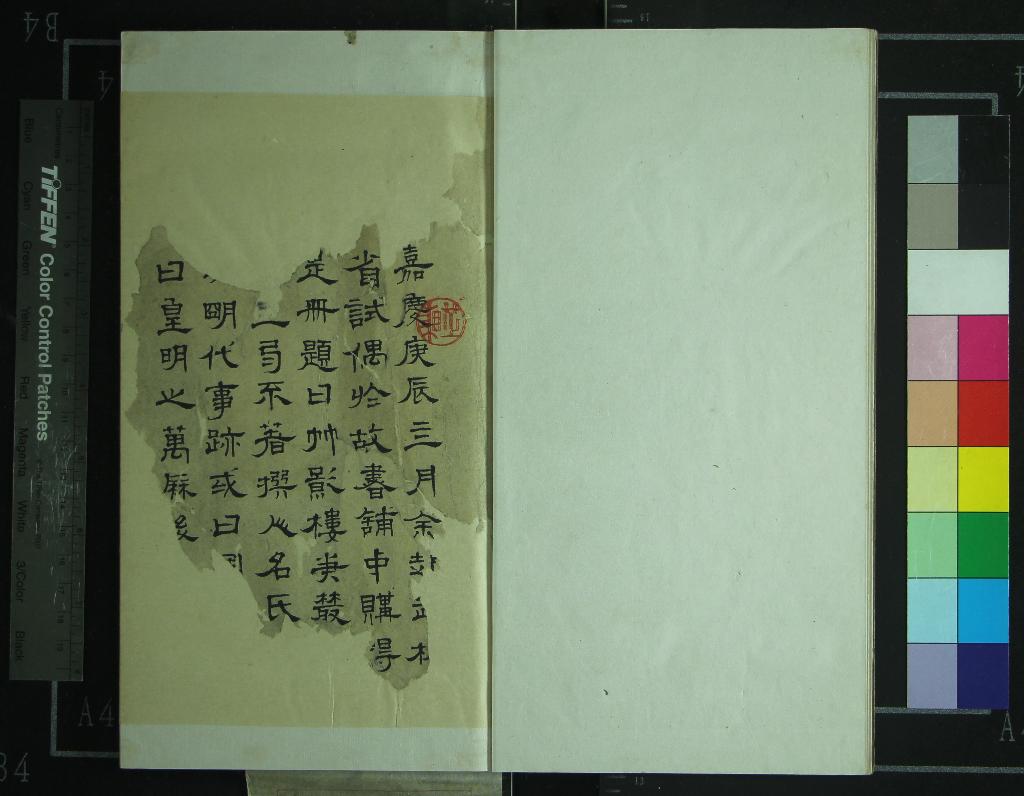 嘉慶庚辰三月余
省試偶於故書舖中購得
是冊題曰影樓叢
一弓不著撰人名氏
明代事跡或曰
曰皇明之萬厤後
TIFFEN Color Control Patches
Blue Cyan Green Yellow Red Magenta White 3/Color Black
B4
A4